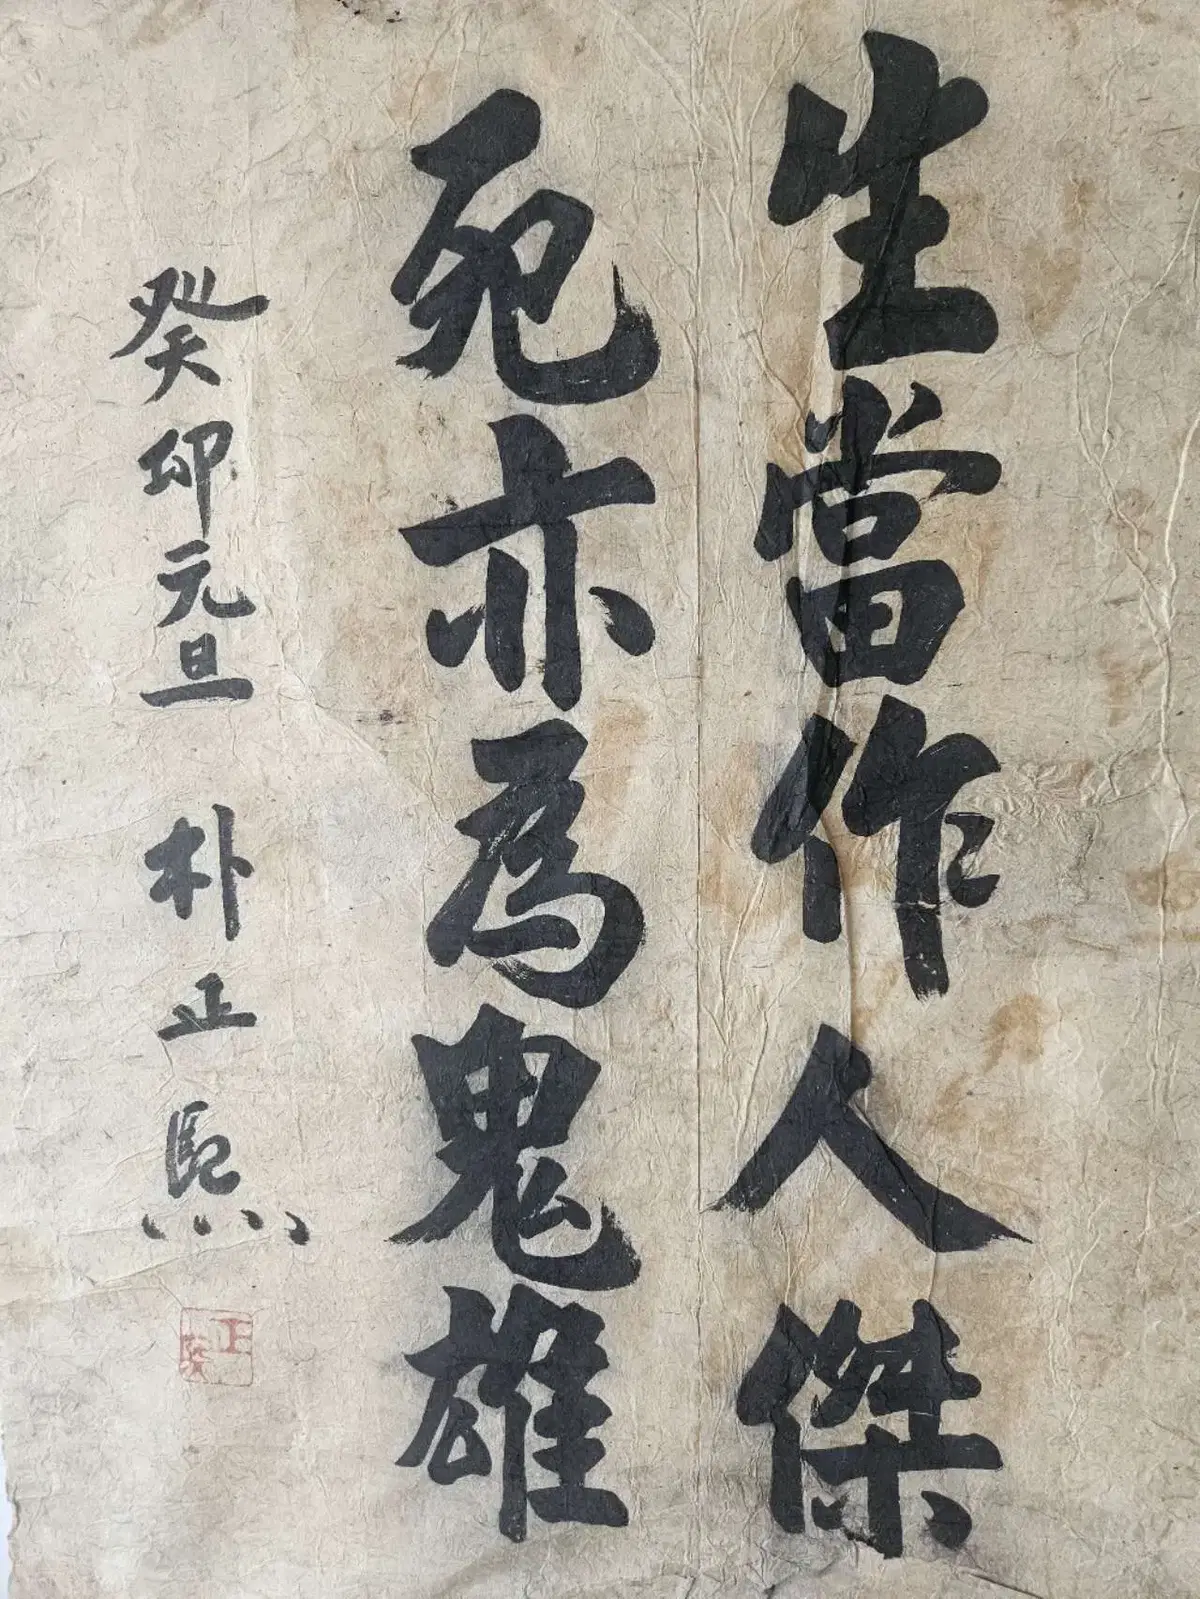 生當作人傑
死亦為鬼雄
癸卯元旦 朴正熙
正熙